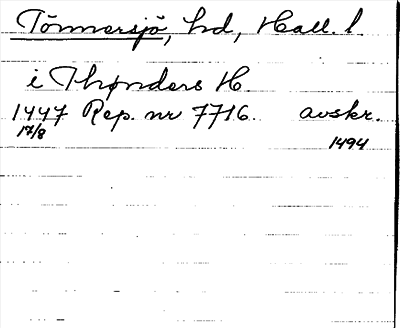 Tönnersjö, hd, Hall. l.
i Thønders H
1447 Rep. nr 7716. avskr.
17/8 1494